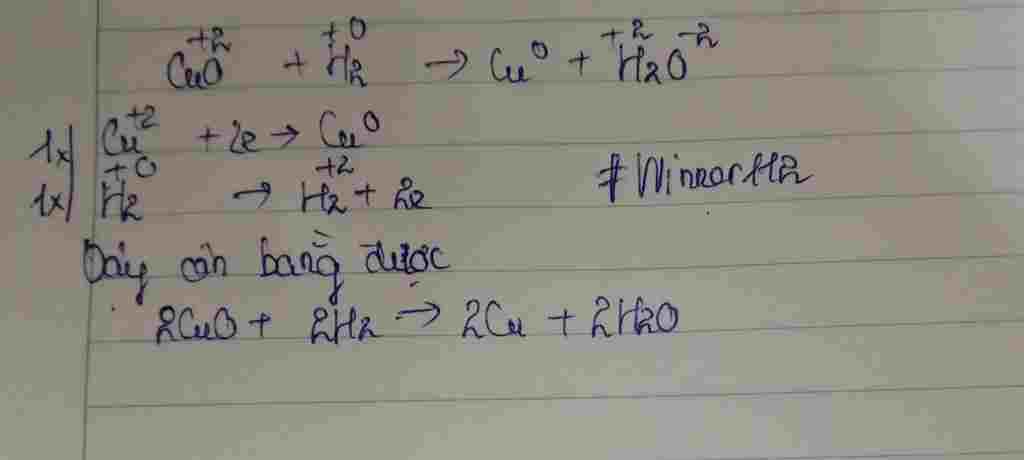 CuO⁺² + H₂⁺⁰ → Cu⁰ + H₂⁺²O⁻²
1x| Cu⁺² + 2e → Cu⁰
1x| H₂⁺⁰ → H₂⁺² + 2e
#WinnorH2
Đây cân bằng được
2CuO + 2H2 → 2Cu + 2H2O